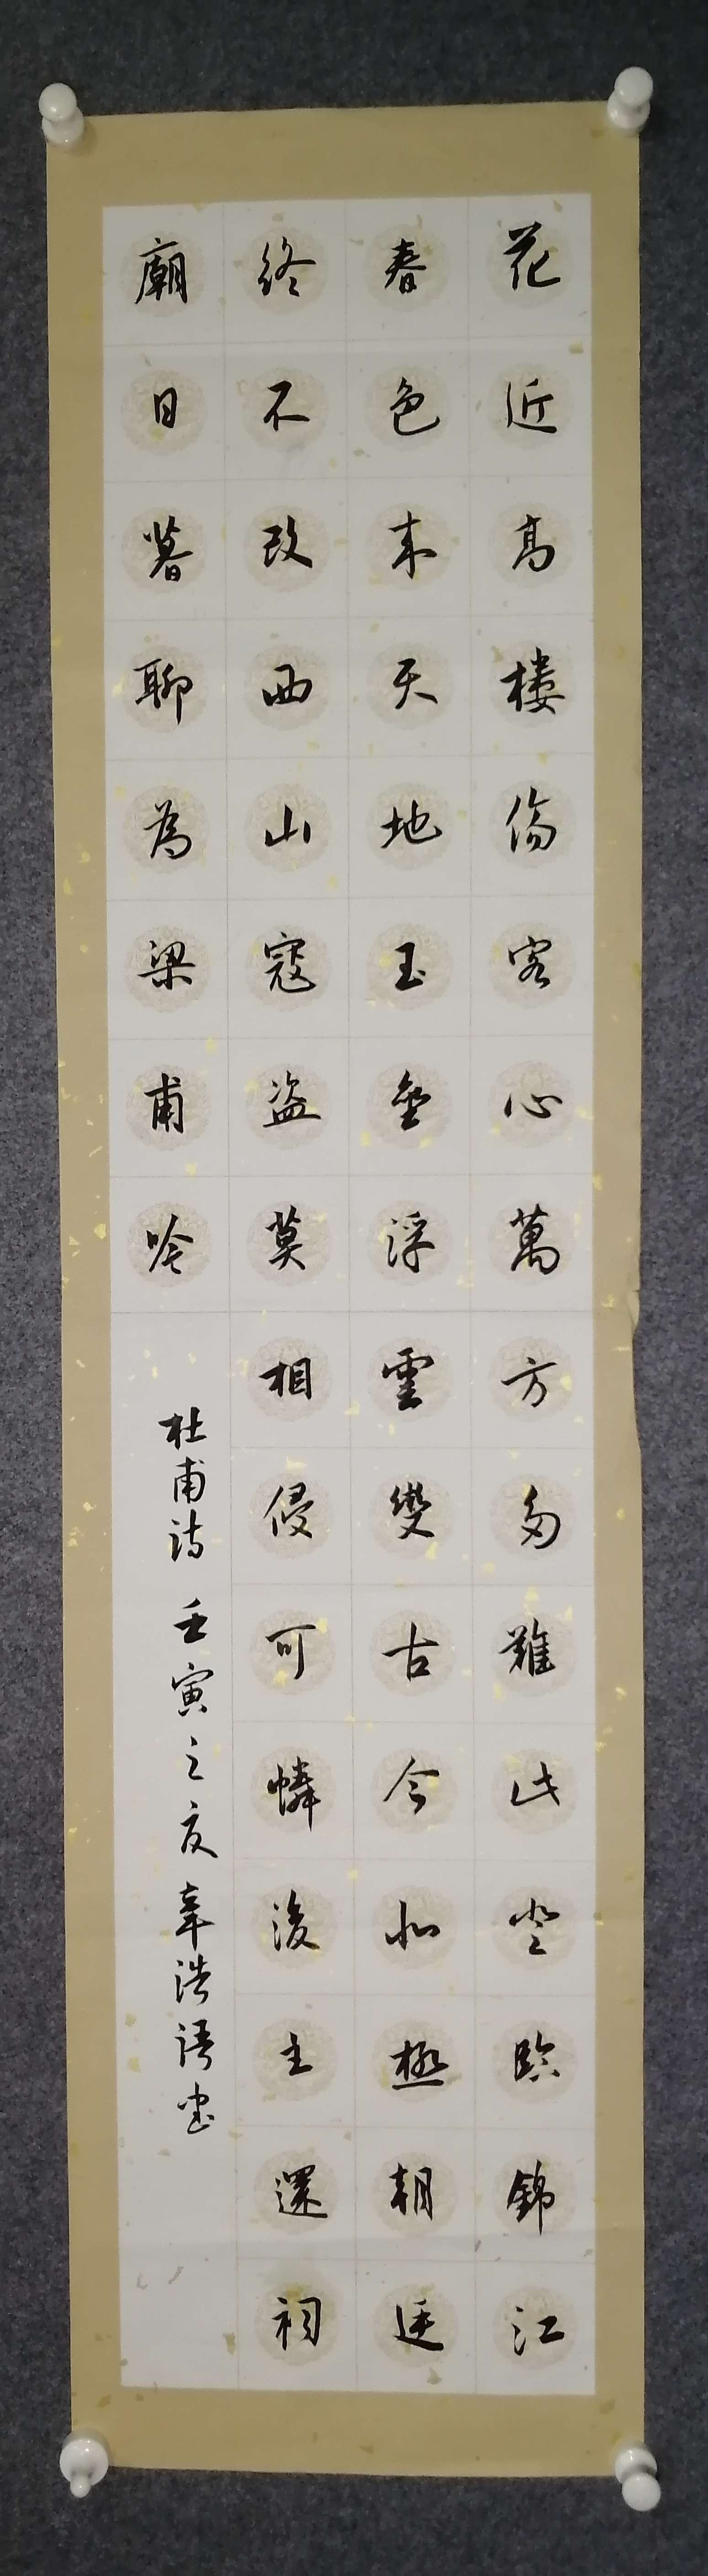 花近高樓傷客心萬方多難此登臨錦江
春色来天地玉壘浮雲變古今北極朝廷
終不改西山寇盗莫相侵可憐後主還祠
廟日暮聊為梁甫吟
杜甫詩壬寅之夏章浩語書